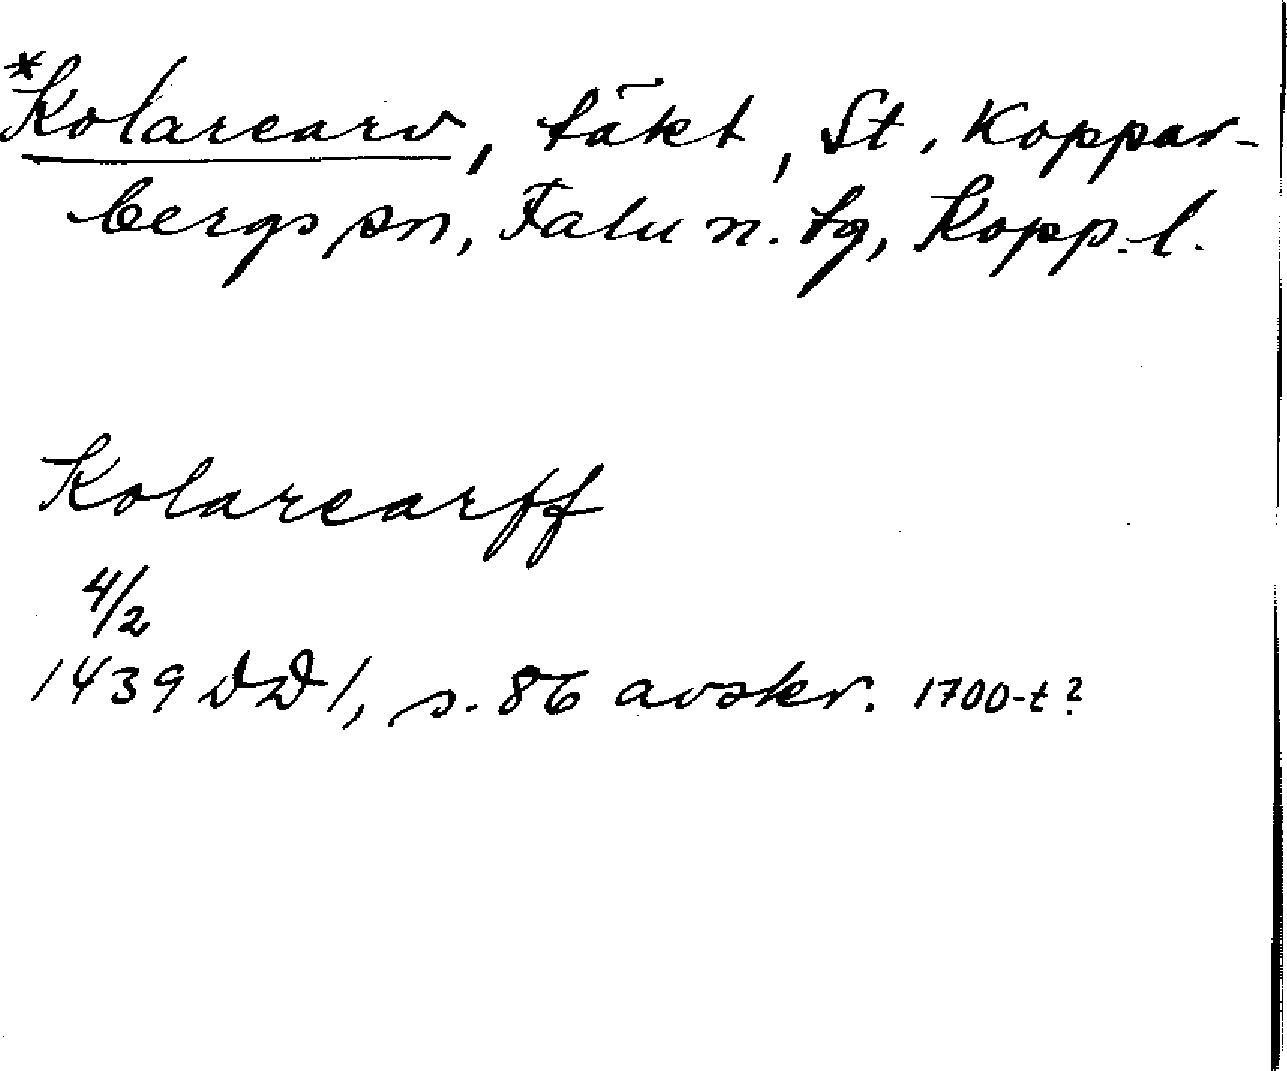 *Kolarearv, täkt, St. Koppar-
bergs sn, Falu n. tg, Kopp. l.
Kolarearff
4/2
1439 DD 1, s. 86 avskr. 1700-t?